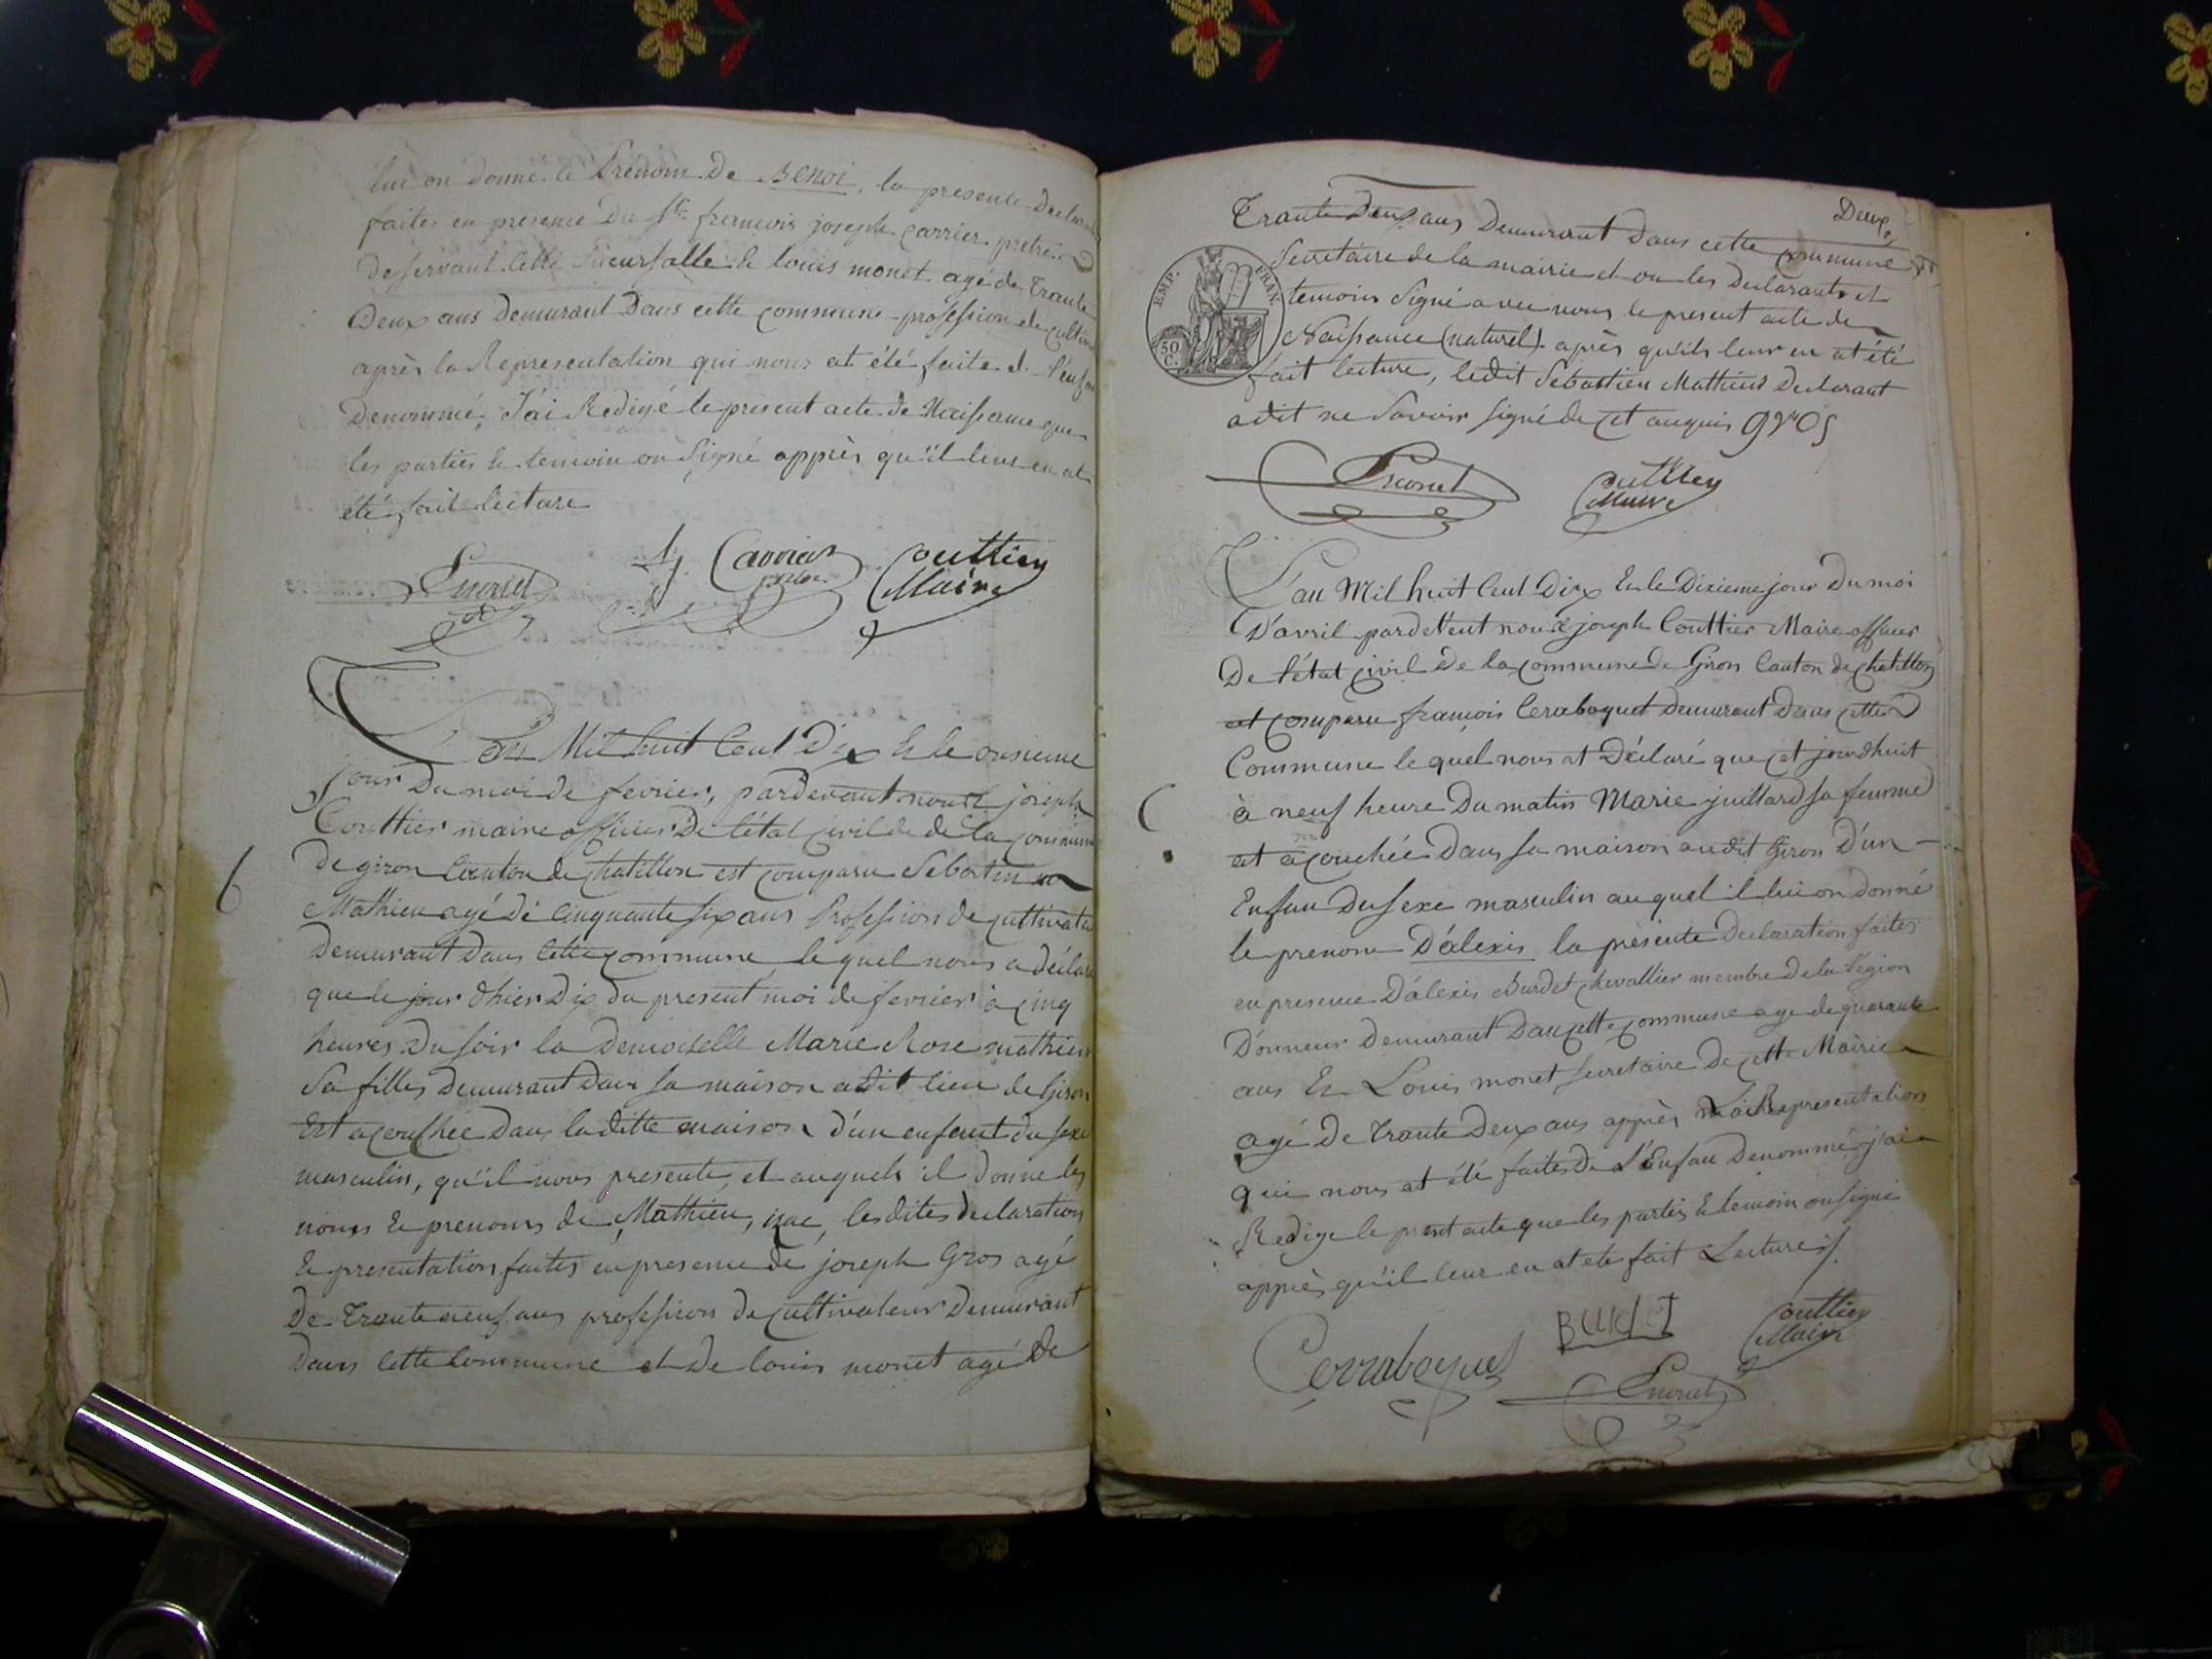 lui on donné le Prénom De Benoi, la presente Declara
faites en presence Du Sr françois joseph carrier pretre
Deservant cette Sucursalle & louis monet agé de Trante
Deux ans Demurant Dans cette commune profession de cultiv
après la Representation qui nous at été faite de l'enfan
Denommé, J'ai Redigé le present acte de Naissance que
les parties & temoin on Signé apprès qu'il leur en at
été fait lecture
Lmonet Carrier Couttier
Maire
L'an Mil huit Cent Dix & le onsieme
jour Du moi de fevrier, pardevant nous joseph
Couttier maire officier De l'état civil de de la commune
de giron Canton de chatillon est comparu Sebastien
Mathieu agé de cinquante six ans Profession de cultivate
Demurant Dans cette commune lequel nous a déclaré
que le jour d'hier Dix du present moi de fevrier à cinq
heures du soir la Demoiselle Marie Rose mathieu
Sa filles demurant dans sa maison adit lieu de Giron
Est acouchée Dans laditte maison d'un enfant du sexe
masculin, qu'il nous presente, et auquels il donne les
noms & prenoms de Mathieu, isac, lesdites declaration
& presentation faites en presence de joseph Gros agé
De Trante neuf ans profession de cultivateur Demurant
Dans cette commune et de louis monet agé de
6
Deux
Trante Deux ans Demurant Dans cette commune
Secretaire de la mairie et on les Declarants et
temoins Signé avec nous le present acte de
Naissance (naturel) après qu'ils leur en at été
fait lecture, ledit Sebastien Mathieu Declarant
adit ne Savoir signé de cet anquis gros
EMP. FRAN.
50 C.
Lmonet Couttier
Maire
L'an Mil huit Cent Dix & le Dixieme jour Du moi
D'avril pardevent nous joseph Couttier Maire officier
De l'état civil De la commune de Giron Canton de chatillon
at comparu françois Cerraboquet demurant dans cette
Commune le quel nous at Déclaré que cet jourdhuit
à neuf heure Du matin Marie juillard sa femme
at acouchée Dans sa maison audit Giron D'un
Enfan Du sexe masculin auquel il lui on donné
le prenom D'alexis la présente Declaration faites
en presence D'alexis Burdet chevallier membre De la légion
D'onneur Demurant Dans cette commune agé de quarante
ans & Louis monet secretaire De cette Mairie
agé De trante Deux ans apprès la Representation
qui nous at été faites de L'Enfan Denommé j'ai
Redige le present acte que les parties & temoin on signé
apprès qu'il leur en at eté fait Lecture
Cerraboquet Burdet Couttier
Maire
Lmonet